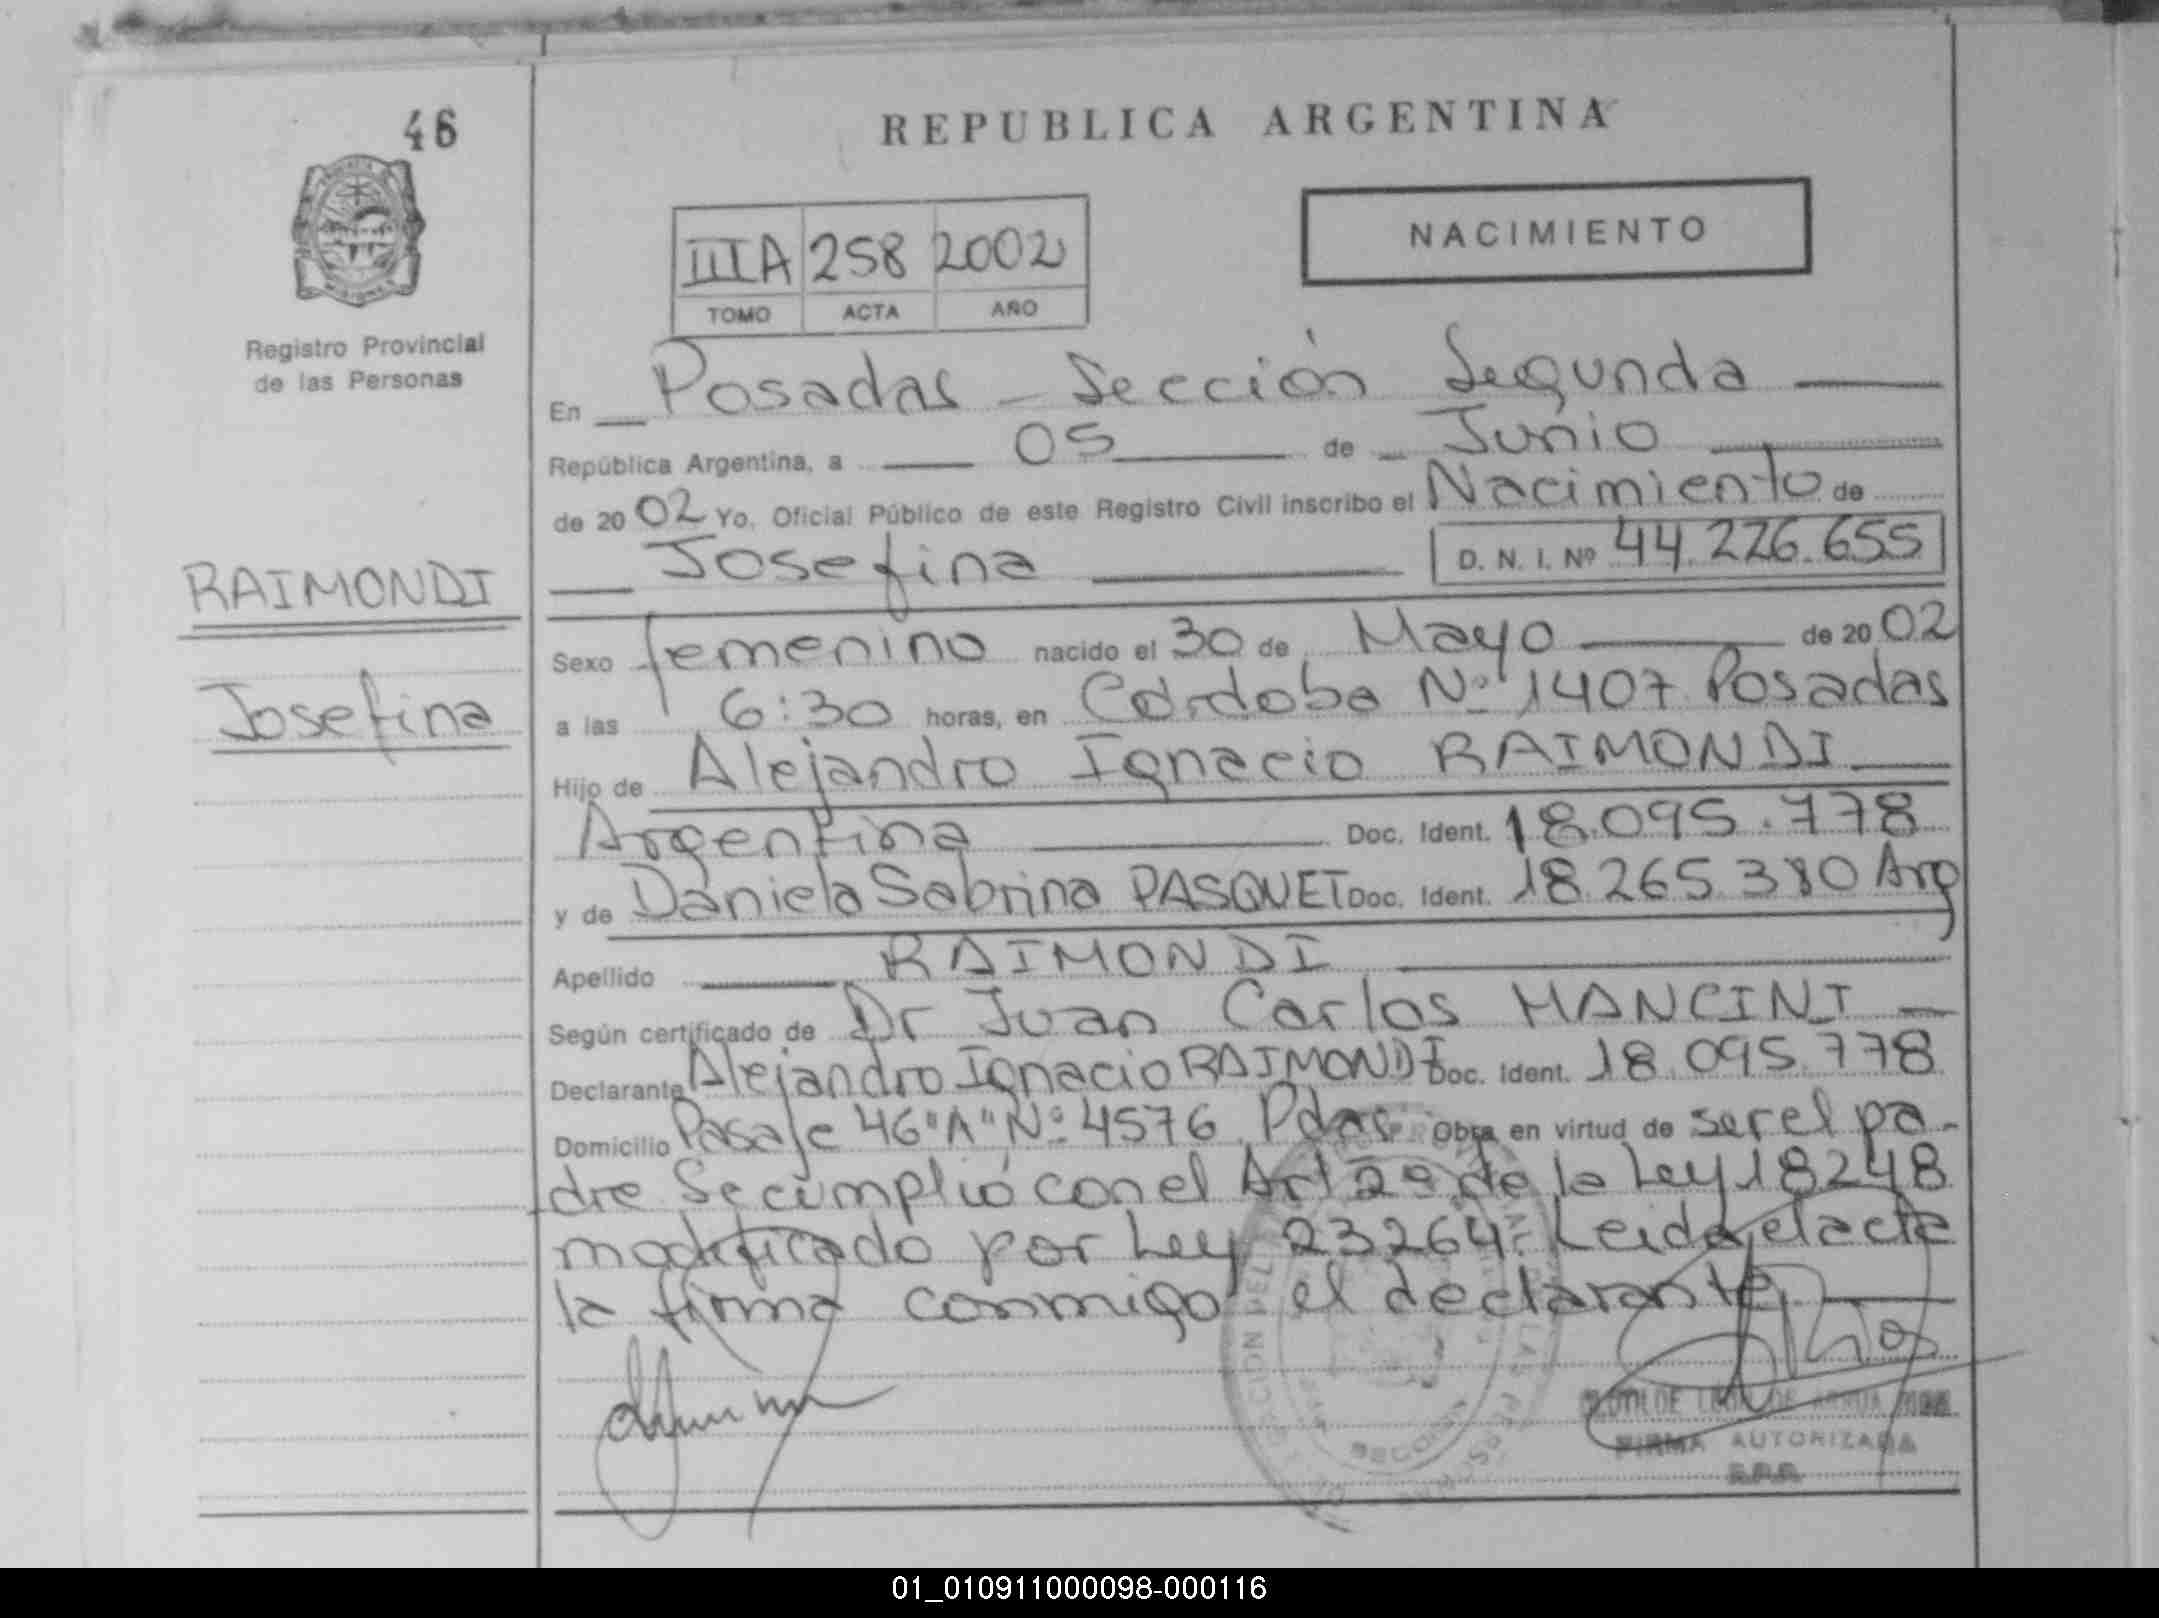 46
REPUBLICA ARGENTINA
NACIMIENTO
IIIA 258 2002
TOMO ACTA AÑO
Registro Provincial
de las Personas
En Posadas - Sección Segunda
República Argentina, a 05 de Junio
de 2002 Yo, Oficial Público de este Registro Civil inscribo el Nacimiento de
Josefina D. N. I. Nº 44.226.655
RAIMONDI
Josefina
Sexo femenino nacido el 30 de Mayo de 2002
a las 6:30 horas, en Córdoba Nº 1407 Posadas
Hijo de Alejandro Ignacio RAIMONDI
Argentina Doc. Ident. 18.095.778
y de Daniela Sabrina PASQUET Doc. Ident. 18.265.380 Arg
Apellido RAIMONDI
Según certificado de Dr Juan Carlos MANCINI
Declarante Alejandro Ignacio RAIMONDI Doc. Ident. 18.095.778
Domicilio Pasaje 46"A" Nº 4576 Pdas Obra en virtud de ser el pa-
dre Se cumplió con el Art 2º de la Ley 18248
modificado por Ley 23264. Leida el acta
la firma conmigo el declarante
FIRMA AUTORIZADA
01_010911000098-000116